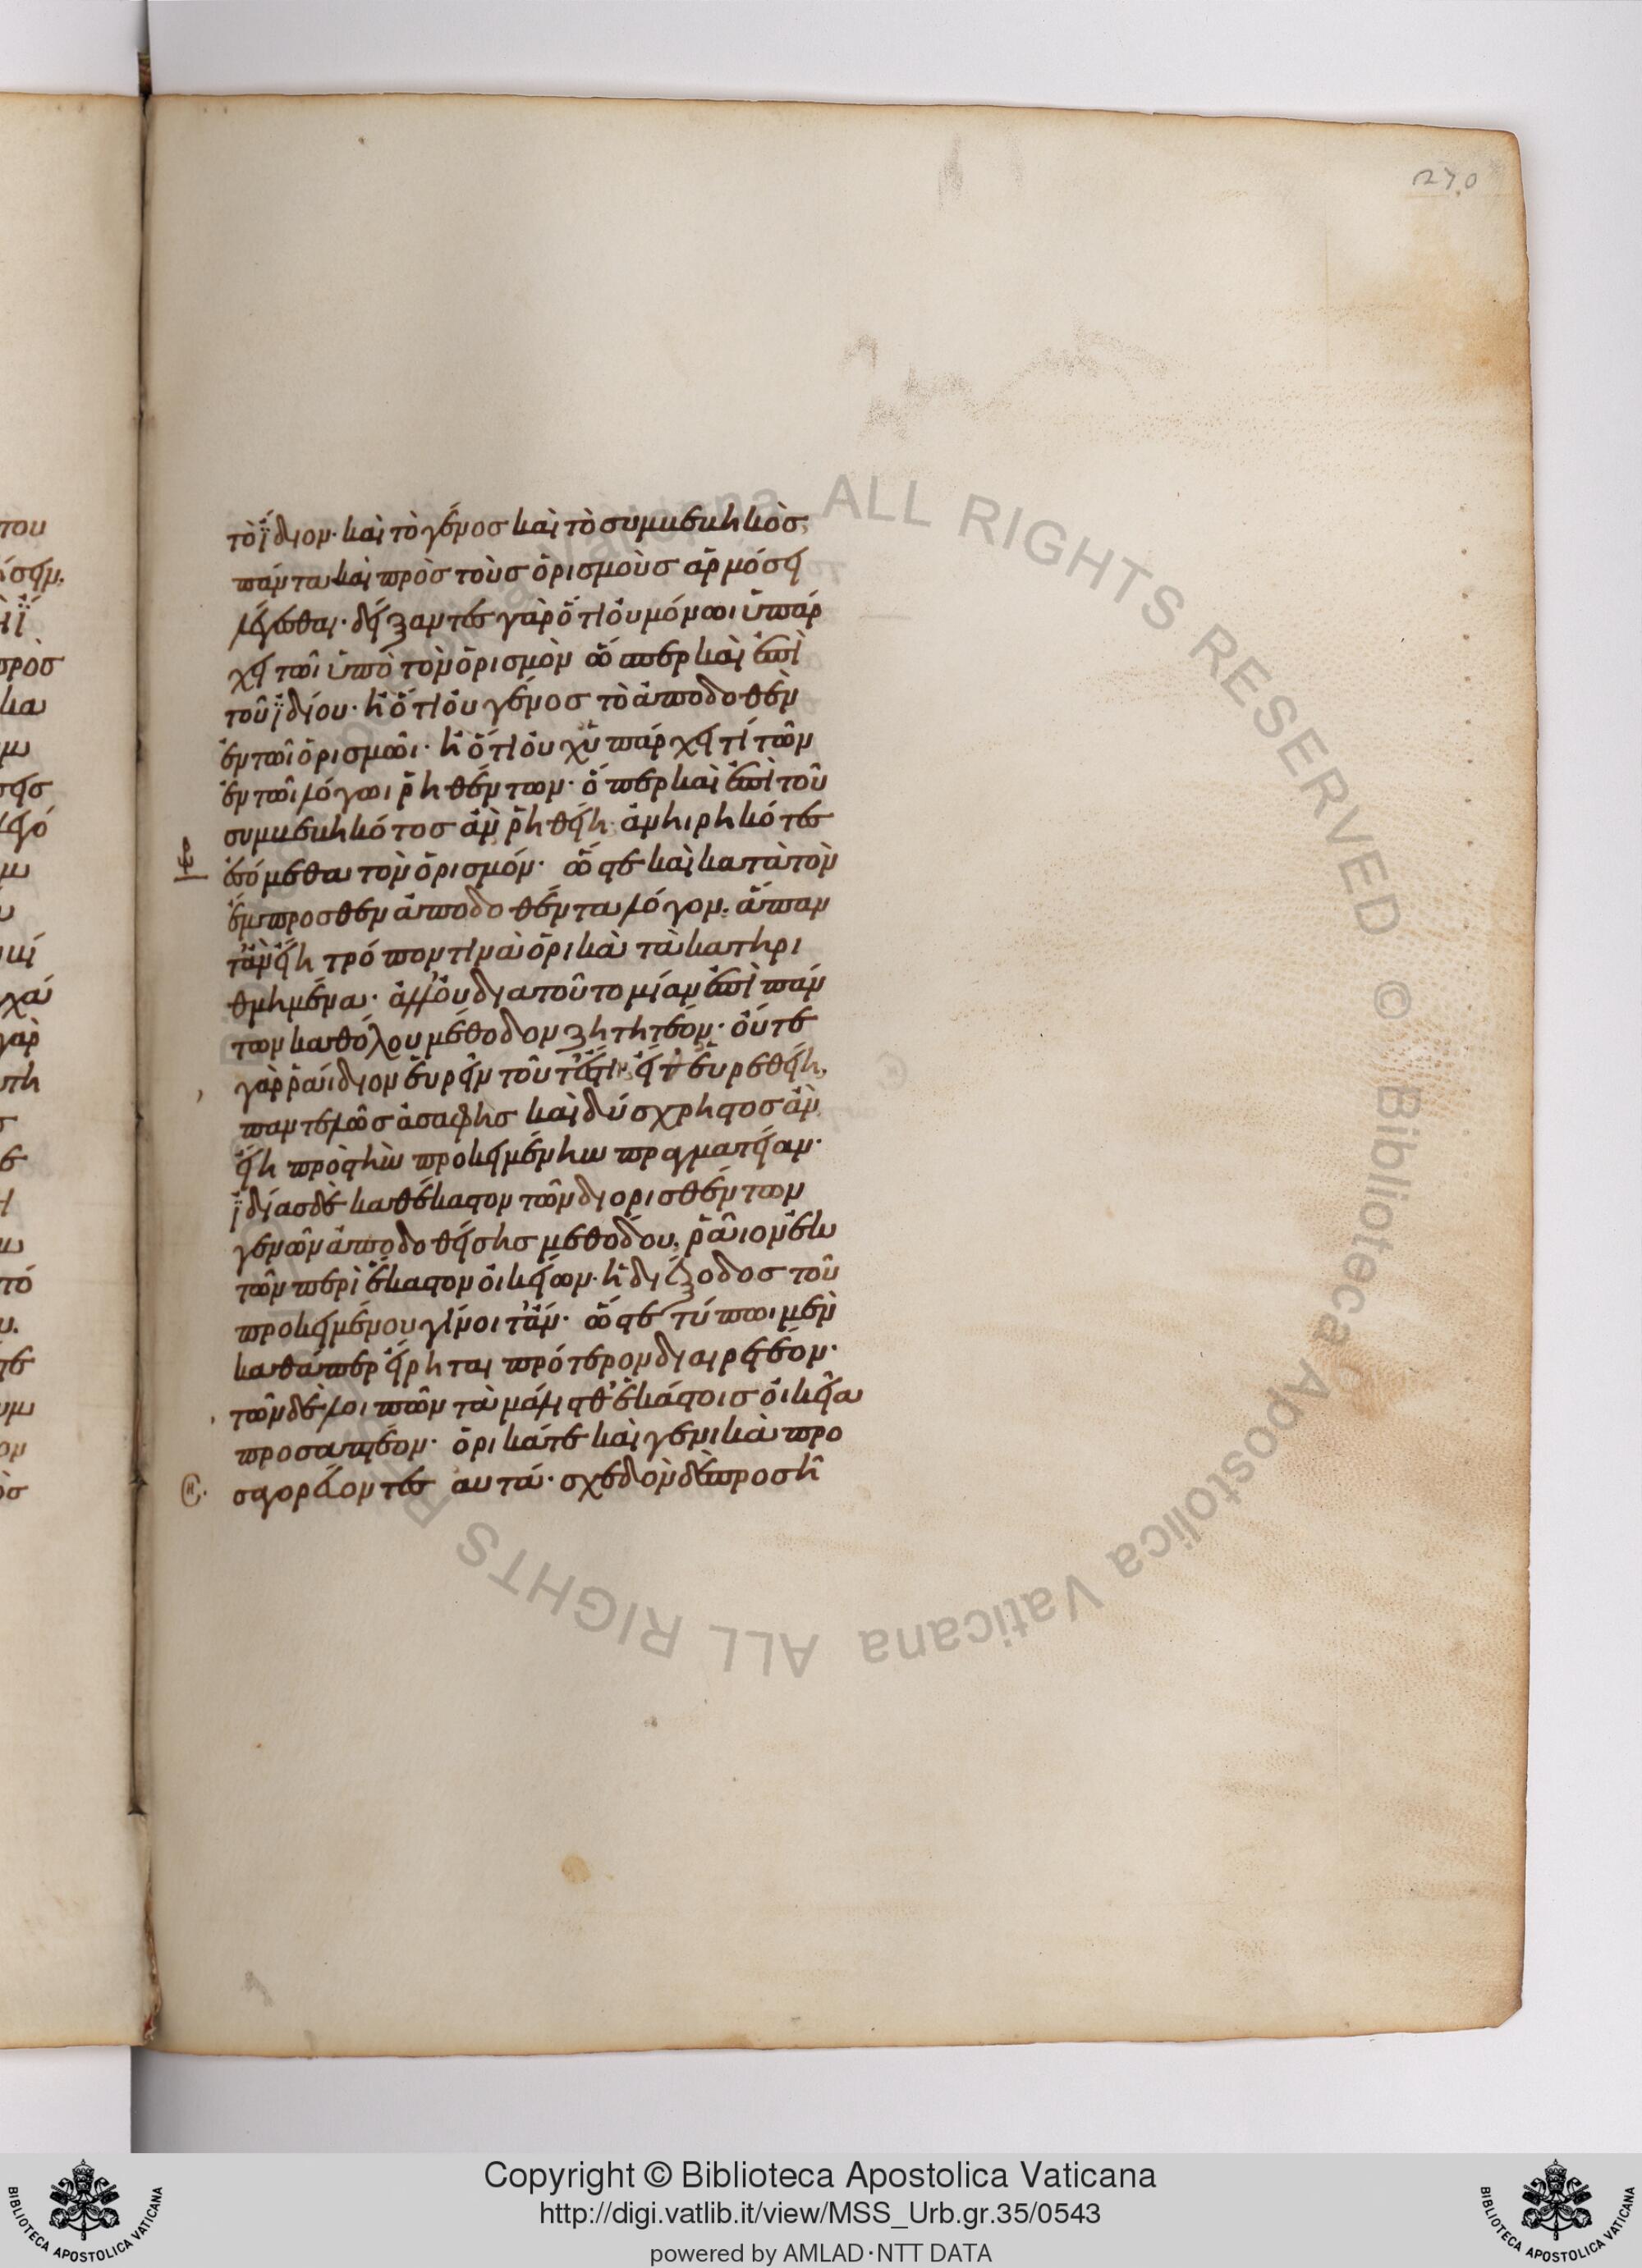 270
τὸ ἴδιον· καὶ τὸ γένος καὶ τὸ συμβεβηκὸς,
πάντα καὶ πρὸς τοὺς ὁρισμοὺς ἁρμόσει
λέγεσθαι· δείξαντες γὰρ ὅτι οὐ μόνωι ὑπάρ
χει τῶι ὑπὸ τὸν ὁρισμὸν ὥσπερ καὶ ἐπὶ
τοῦ ἰδίου· ἢ ὅτι οὐ γένος τὸ ἀποδοθὲν
ἐν τῶι ὁρισμῶι· ἢ ὅτι οὐχ ὑπάρχει τί τῶν
ἐν τῶι λόγωι ῥηθέντων· ὅπερ καὶ ἐπὶ τοῦ
συμβεβηκότος ἂν ῥηθείη· ἀνηιρηκότες
ἐσόμεθα τὸν ὁρισμόν· ὥστε καὶ κατὰ τὸν
ἔμπροσθεν ἀποδοθέντα λόγον, ἅπαν
τ' ἂν εἴη τρόπον τινὰ ὁρικὰ τὰ κατηρι
θμημένα· ἀλλ' οὐ διατοῦτο μίαν ἐπὶ πάν
των καθόλου μέθοδον ζητητέον· οὔτε
γὰρ ῥάιδιον εὑρεῖν τοῦτ' ἐστὶν· εἴ θ' εὑρεθείη,
παντελῶς ἀσαφὴς καὶ δύσχρηστος ἂν
εἴη πρὸς τὴν προκειμένην πραγματείαν·
ἰδίας δὲ καθέκαστον τῶν διορισθέντων
γενῶν ἀποδοθείσης μεθόδου, ῥᾶιον ἐκ
τῶν περὶ ἕκαστον οἰκείων· ἡ διέξοδος τοῦ
προκειμένου γίνοιτ' ἄν· ὥστε τύπωι μὲν
καθάπερ εἴρηται πρότερον διαιρετέον·
τῶν δὲ λοιπῶν τὰ μάλισθ' ἑκάστοις οἰκεῖα
προσαπτέον· ὁρικά τε καὶ γενικὰ προ
σαγορεύοντες αυτά· σχεδὸν δὲ προσή
Copyright © Biblioteca Apostolica Vaticana
http://digi.vatlib.it/view/MSS_Urb.gr.35/0543
powered by AMLAD·NTT DATA
BIBLIOTECA APOSTOLICA VATICANA
BIBLIOTECA APOSTOLICA VATICANA